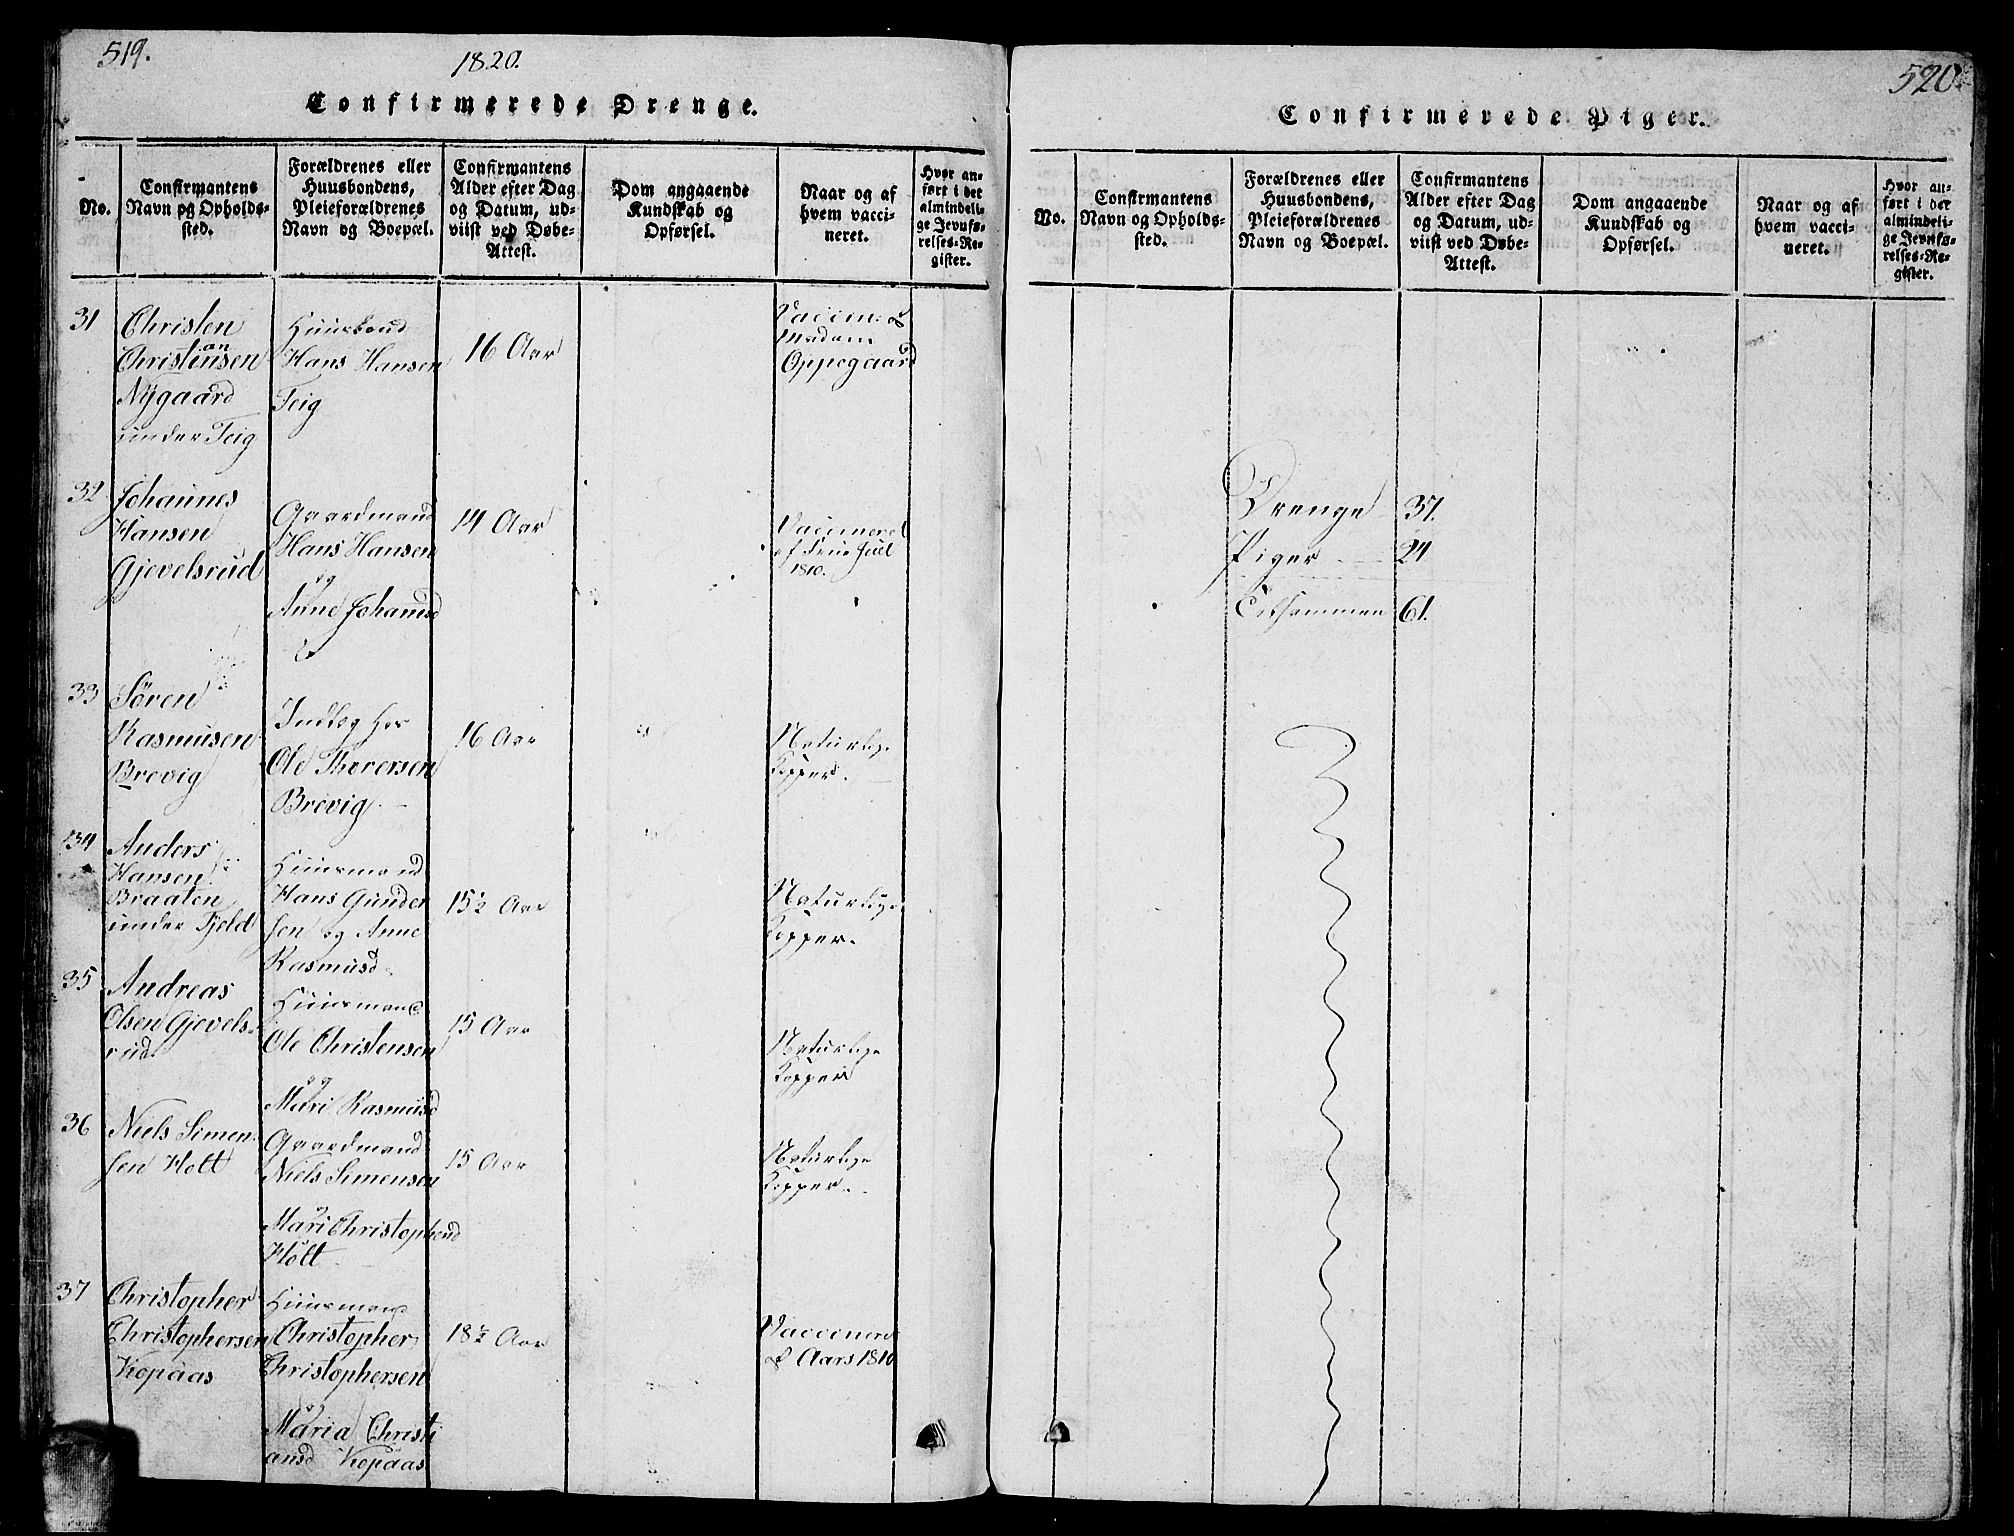 519.
1820.
Confirmerede Drenge.
No.
Confirmantens
Navn og Opholds-
sted.
Forældrenes eller
Huusbondens,
Pleieforældrenes
Navn og Boepæl.
Confirmantens
Alder efter Dag
og Datum, ud-
viist ved Døbe-
Attest.
Dom angaaende
Kundskab og
Opførsel.
Naar og af
hvem vacci-
neret.
Hvor an-
ført i det
almindeli-
ge Jevnfø-
relses-Re-
gister.
31
Christen
an
Christensen
Nygaard
under Teig
Huusbond
Hans Hansen
Teig
16 Aar
Vaccin: af
Madam
Oppegaard
32
Johannes
Hansen
Gjevelsrud
Gaardmand
Hans Hansen
og
Anne Johansd
14 Aar
Vaccineret
af Frue Juel
1810.
33
Søren
Rasmusen
Brevig
Indlæg hos
Ole Thoresen
Brevig
16 Aar
Naturlige
Kopper.
34
Anders
Hansen
Braaten
under Fjeld
Huusmand
Hans Gunder
sen og Anne
Rasmusd
15½ Aar
Naturlige
Kopper.
35
Andreas
Olsen Gjevels-
rud.
Huusmand
Ole Christensen
og
Mari Rasmusd
15 Aar
Naturlige
Kopper
36
Niels Simen-
sen Holt
Gaardmand
Niels Simensen
Mari Christophersd
Holt
15 Aar
Naturlige
Kopper.
37
Christopher
Christophersen
Kopaas
Huusmand
Christopher
Christophersen
og
Maria Christi
ansd Kopaas
18½ Aar
Vaccineret
af Aars 1810
520.
Confirmerede Piger.
No.
Confirmantens
Navn og Opholds-
sted.
Forældrenes eller
Huusbondens,
Pleieforældrenes
Navn og Boepæl.
Confirmantens
Alder efter Dag
og Datum, ud-
viist ved Døbe-
Attest.
Dom angaaende
Kundskab og
Opførsel.
Naar og af
hvem vacci-
neret.
Hvor an-
ført i det
almindeli-
ge Jevnfø-
relses-Re-
gister.
Drenge 37.
Piger 24
Tilsammen 61.